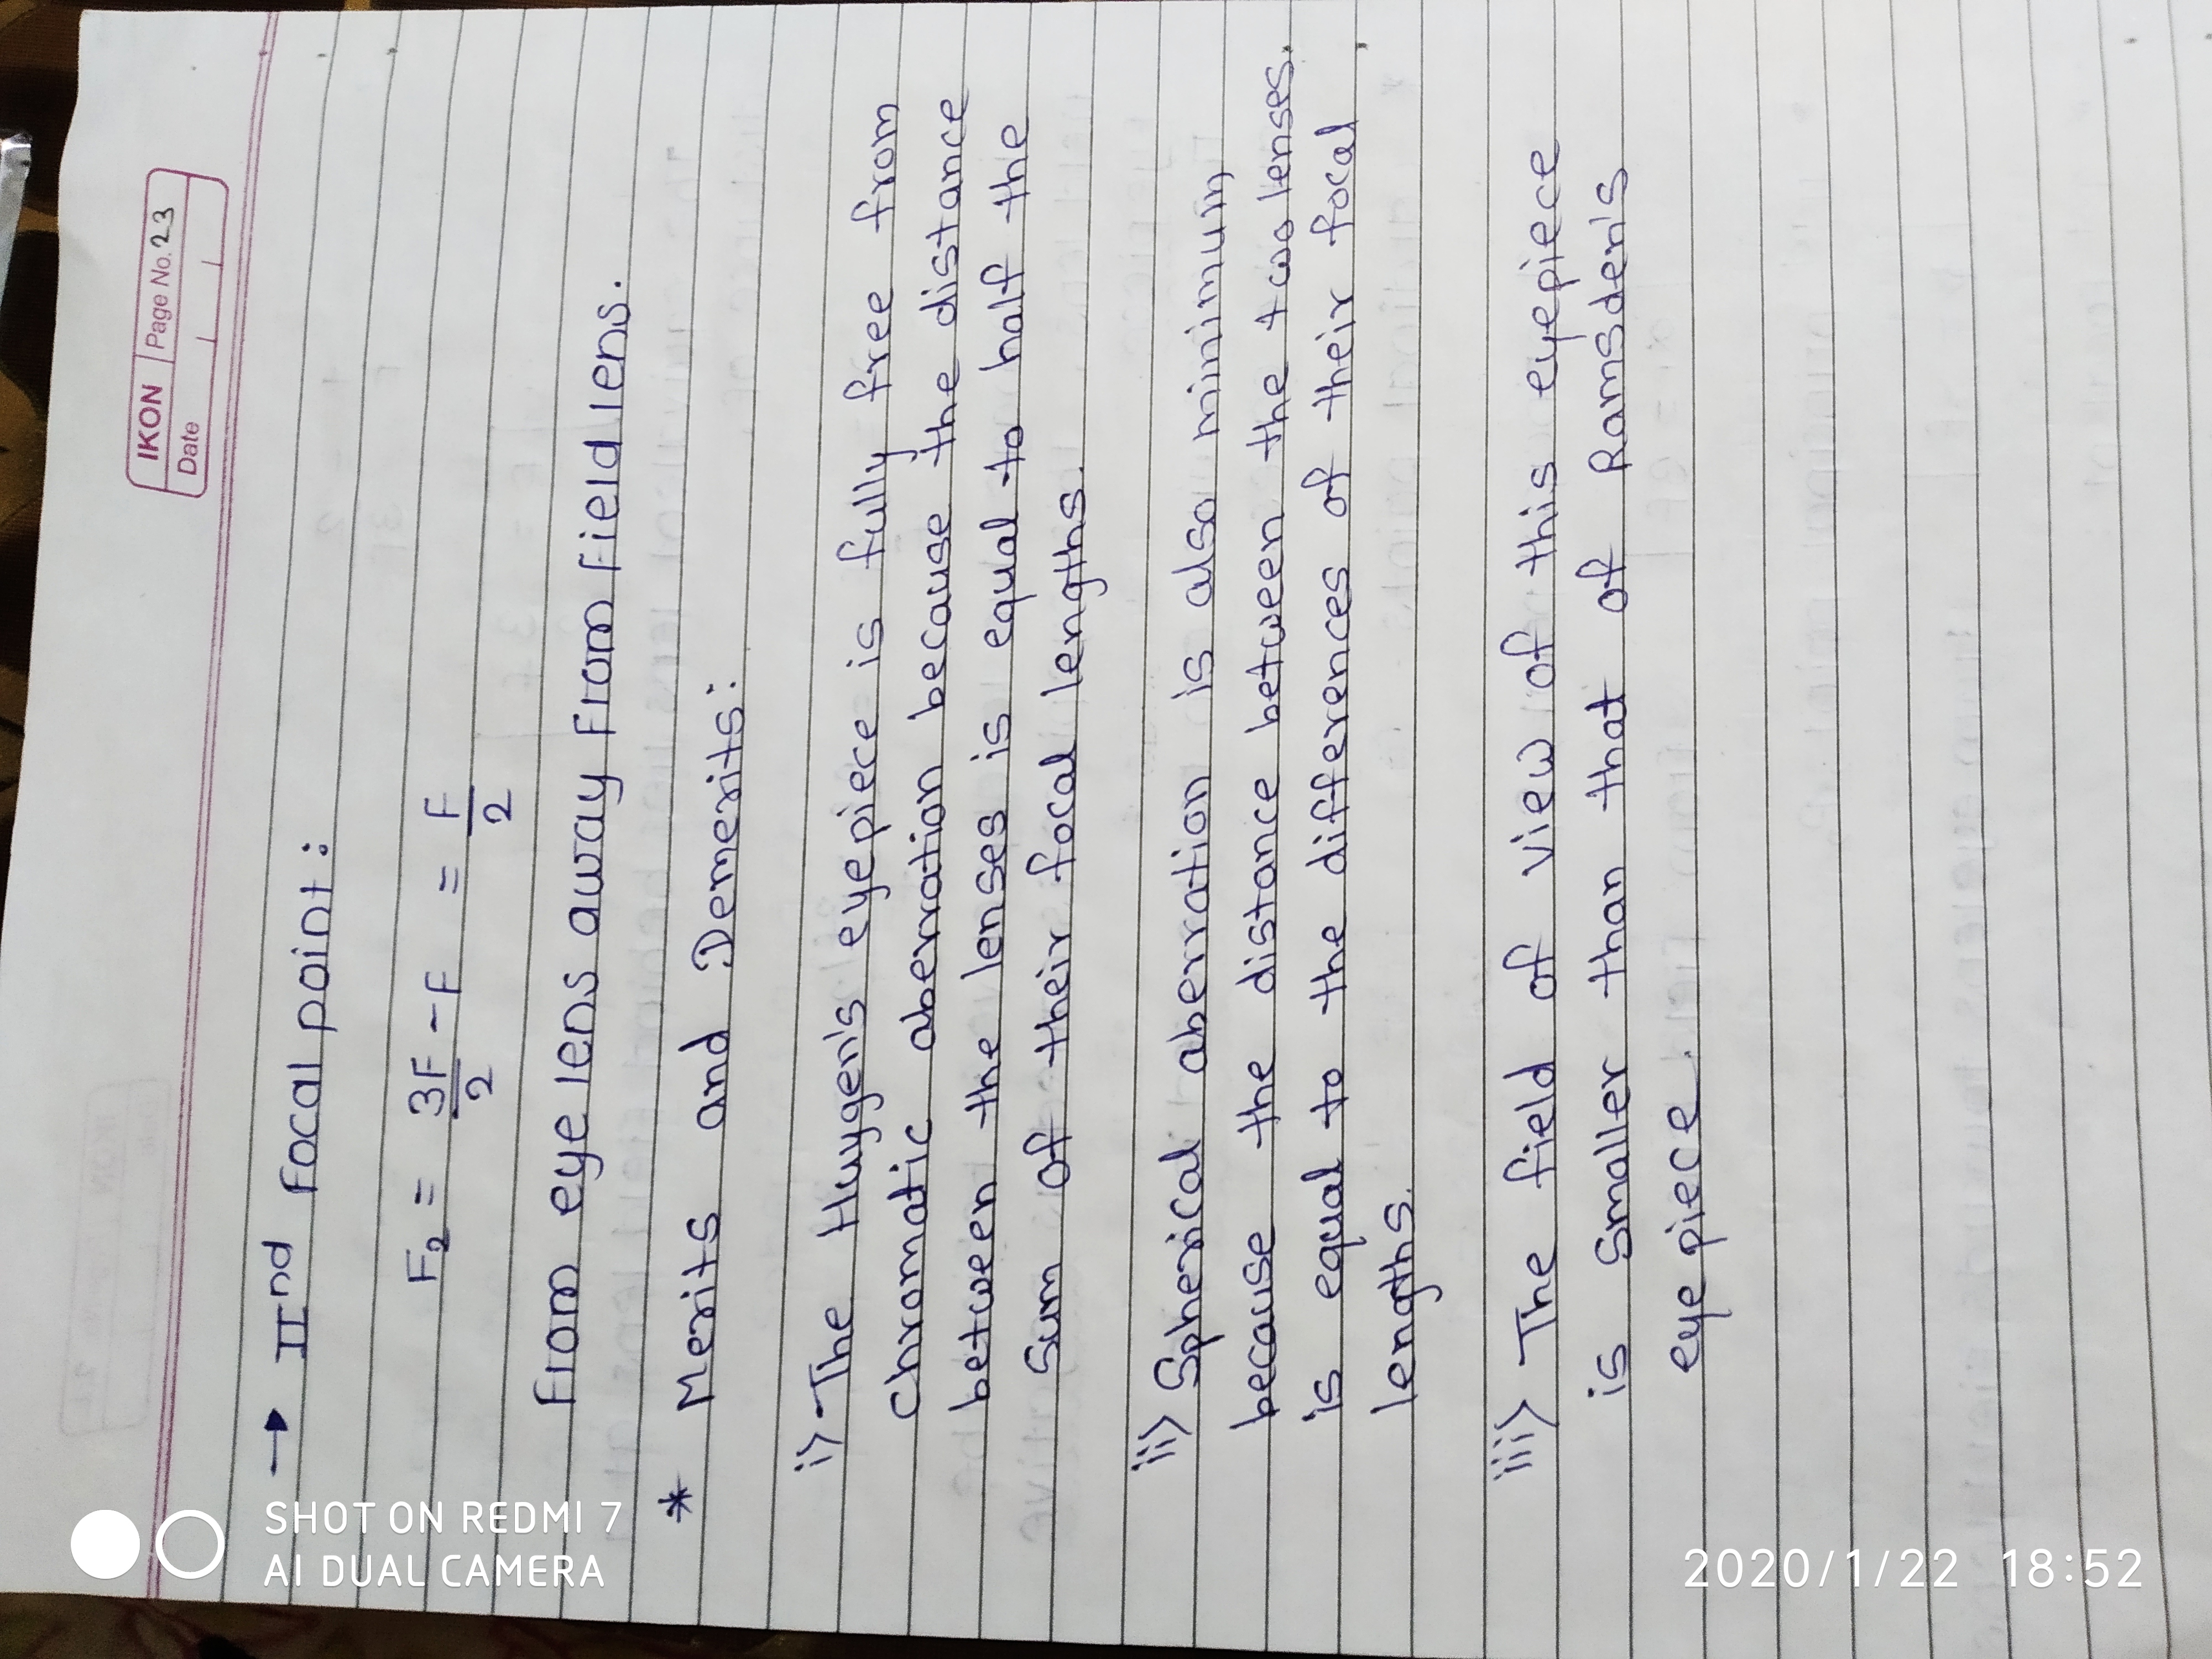 IKON Page No. 23
Date
→ IInd Focal point:
F2 = 3F/2 - F = F/2
From eye lens away From Field lens.
* Merits and Demerits:
i) The Huygen's eyepiece is fully free from
chromatic aberration because the distance
between the lenses is equal to half the
sum of their focal lengths.
ii) Spherical aberration is also minimum
because the distance between the two lenses.
is equal to the differences of their focal
lengths.
iii) The field of view of this eyepiece
is smaller than that of Ramsden's
eye piece.
SHOT ON REDMI 7
AI DUAL CAMERA
2020/1/22 18:52